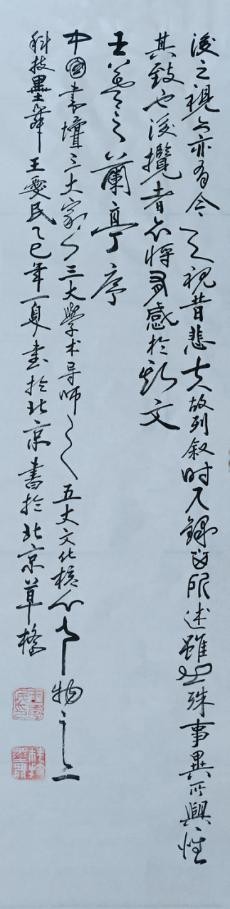 後之視今亦有今之視昔悲夫故列叙时人錄其所述雖世殊事異所興懷
其致也後攬者亦將有感於斯文
王羲之蘭亭序
中國書壇三大家 三大學术导师之一 五大文化核心人物之一
科技墨筆王雯民乙巳年夏書於北京書於北京草橋